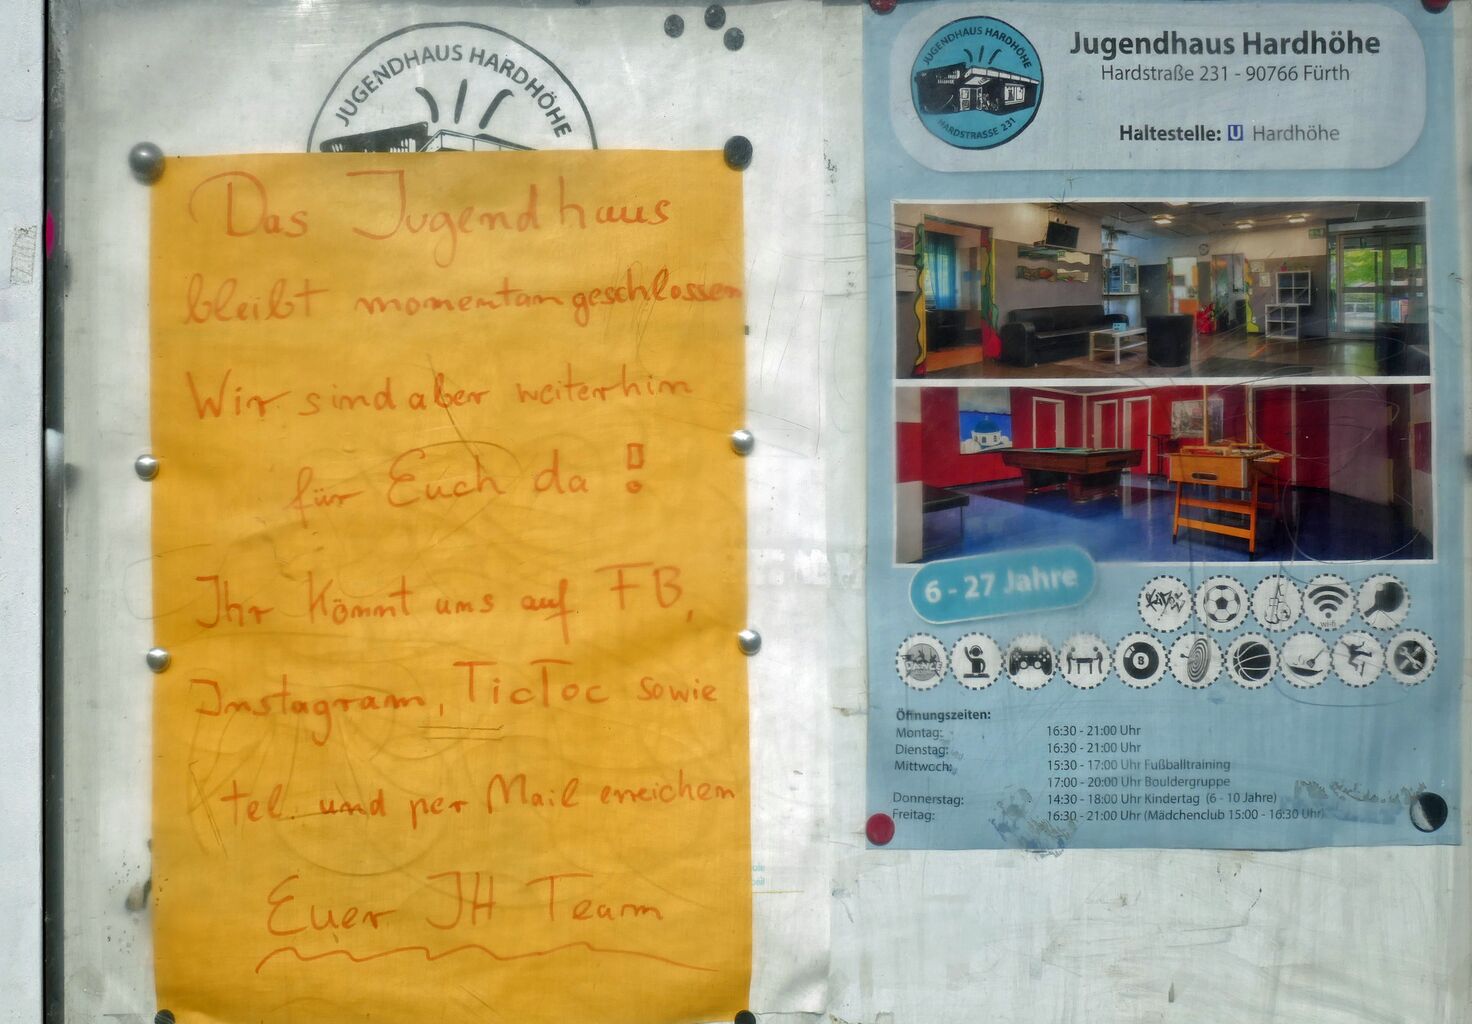 JUGENDHAUS HARDHÖHE
Das Jugendhaus
bleibt momentan geschlossen
Wir sind aber weiterhin
für Euch da !
Ihr könnt uns auf FB,
Instagram, TicToc sowie
tel. und per Mail erreichen
Euer JH Team
JUGENDHAUS HARDHÖHE
HARDSTRASSE 231
Jugendhaus Hardhöhe
Hardstraße 231 - 90766 Fürth
Haltestelle: U Hardhöhe
6 - 27 Jahre
Wi-fi
DANCE
8
Öffnungszeiten:
Montag: 16:30 - 21:00 Uhr
Dienstag: 16:30 - 21:00 Uhr
Mittwoch: 15:30 - 17:00 Uhr Fußballtraining
17:00 - 20:00 Uhr Bouldergruppe
Donnerstag: 14:30 - 18:00 Uhr Kindertag (6 - 10 Jahre)
Freitag: 16:30 - 21:00 Uhr (Mädchenclub 15:00 - 16:30 Uhr)